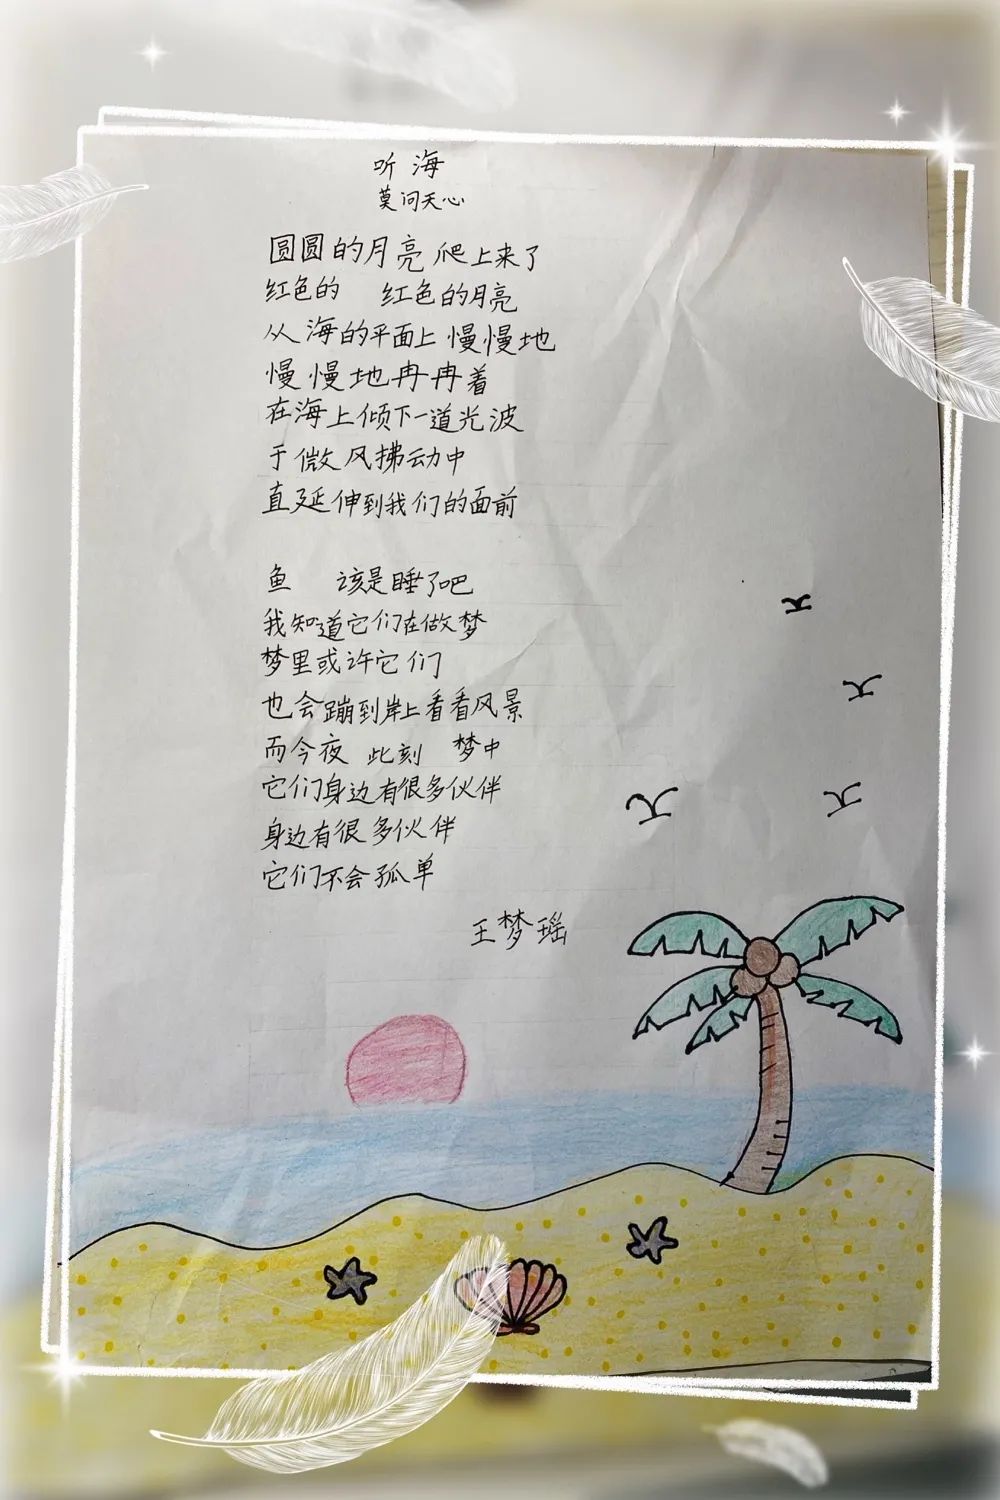 听海
莫问天心
圆圆的月亮爬上来了
红色的 红色的月亮
从海的平面上慢慢地
慢慢地冉冉着
在海上倾下一道光波
于微风拂动中
直延伸到我们的面前
鱼 该是睡了吧
我知道它们在做梦
梦里或许它们
也会蹦到岸上看看风景
而今夜 此刻 梦中
它们身边有很多伙伴
身边有很多伙伴
它们不会孤单
王梦瑶